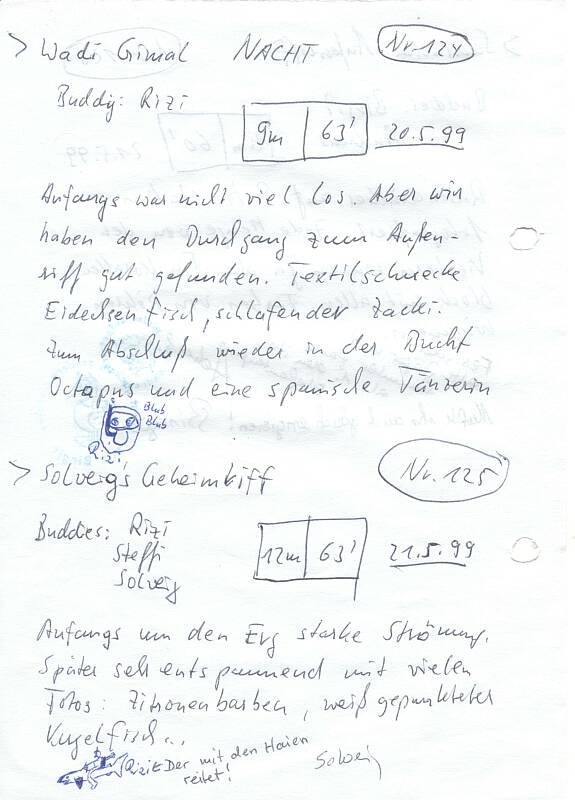 > Wadi Gimal NACHT Nr. 124
Buddy: Rizi
9m 63' 20.5.99
Anfangs war nicht viel los. Aber wir
haben den Durchgang zum Außen-
riff gut gefunden. Textilschnecke
Eidechsenfisch, schlafender Zacki.
Zum Abschluß wieder in der Bucht
Octapus und eine spanische Tänzerin
Blub
Blub
Rizi
> Solveig's Geheimriff Nr. 125
Buddies: Rizi
Steffi
Solveig
12m 63' 21.5.99
Anfangs um den Erg starke Strömung.
Später sehr entspannend mit vielen
Fotos: Zitronenbarben, weiß gepunkteter
Kugelfisch...
Rizi Der mit den Haien
reitet!
Solveig